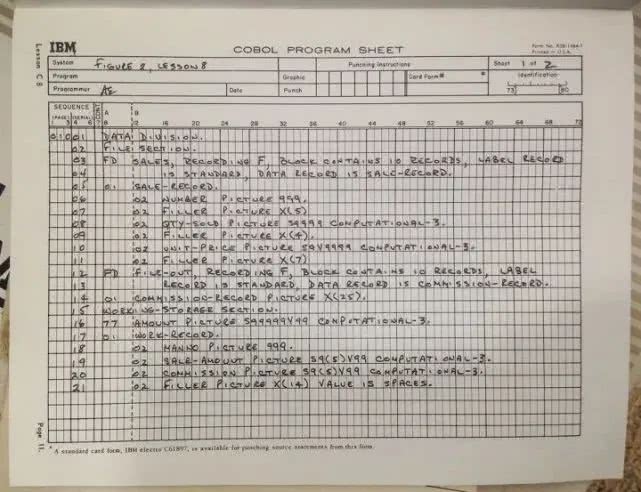 Lesson C 8
IBM
COBOL PROGRAM SHEET
Printed in U.S.A.
System FIGURE 2, LESSON 8
Punching Instructions
Sheet 1 of 2
Program
Graphic
Card Form# *
Identification
Programmer
Date
Punch
73 80
SEQUENCE
(PAGE) (SERIAL)
A B
1 3 4 6 7 8 12 16 20 24 28 32 36 40 44 48 52 56 60 64 68 72
01001 DATA DIVISION.
02 FILE SECTION.
03 FD SALES, RECORDING F, BLOCK CONTAINS 10 RECORDS, LABEL RECORD
04 IS STANDARD, DATA RECORD IS SALE-RECORD.
05 01 SALE-RECORD.
06 02 NUMBER PICTURE 999.
07 02 FILLER PICTURE X(5)
08 02 QTY-SOLD PICTURE S9999 COMPUTATIONAL-3.
09 02 FILLER PICTURE X(4).
10 02 UNIT-PRICE PICTURE S9V9999 COMPUTATIONAL-3.
11 02 FILLER PICTURE X(7)
12 FD FILE-OUT, RECORDING F, BLOCK CONTAINS 10 RECORDS, LABEL
13 RECORD IS STANDARD, DATA RECORD IS COMMISSION-RECORD.
14 01 COMMISSION-RECORD PICTURE X(25).
15 WORKING-STORAGE SECTION.
16 77 AMOUNT PICTURE S99999V99 COMPUTATIONAL-3.
17 01 WORK-RECORD.
18 02 MANNO PICTURE 999.
19 02 SALE-AMOUNT PICTURE S9(5)V99 COMPUTATIONAL-3.
20 02 COMMISSION PICTURE S9(5)V99 COMPUTATIONAL-3.
21 02 FILLER PICTURE X(14) VALUE IS SPACES.
Page 11.
* A standard card form, IBM electro C61897, is available for punching source statements from this form.